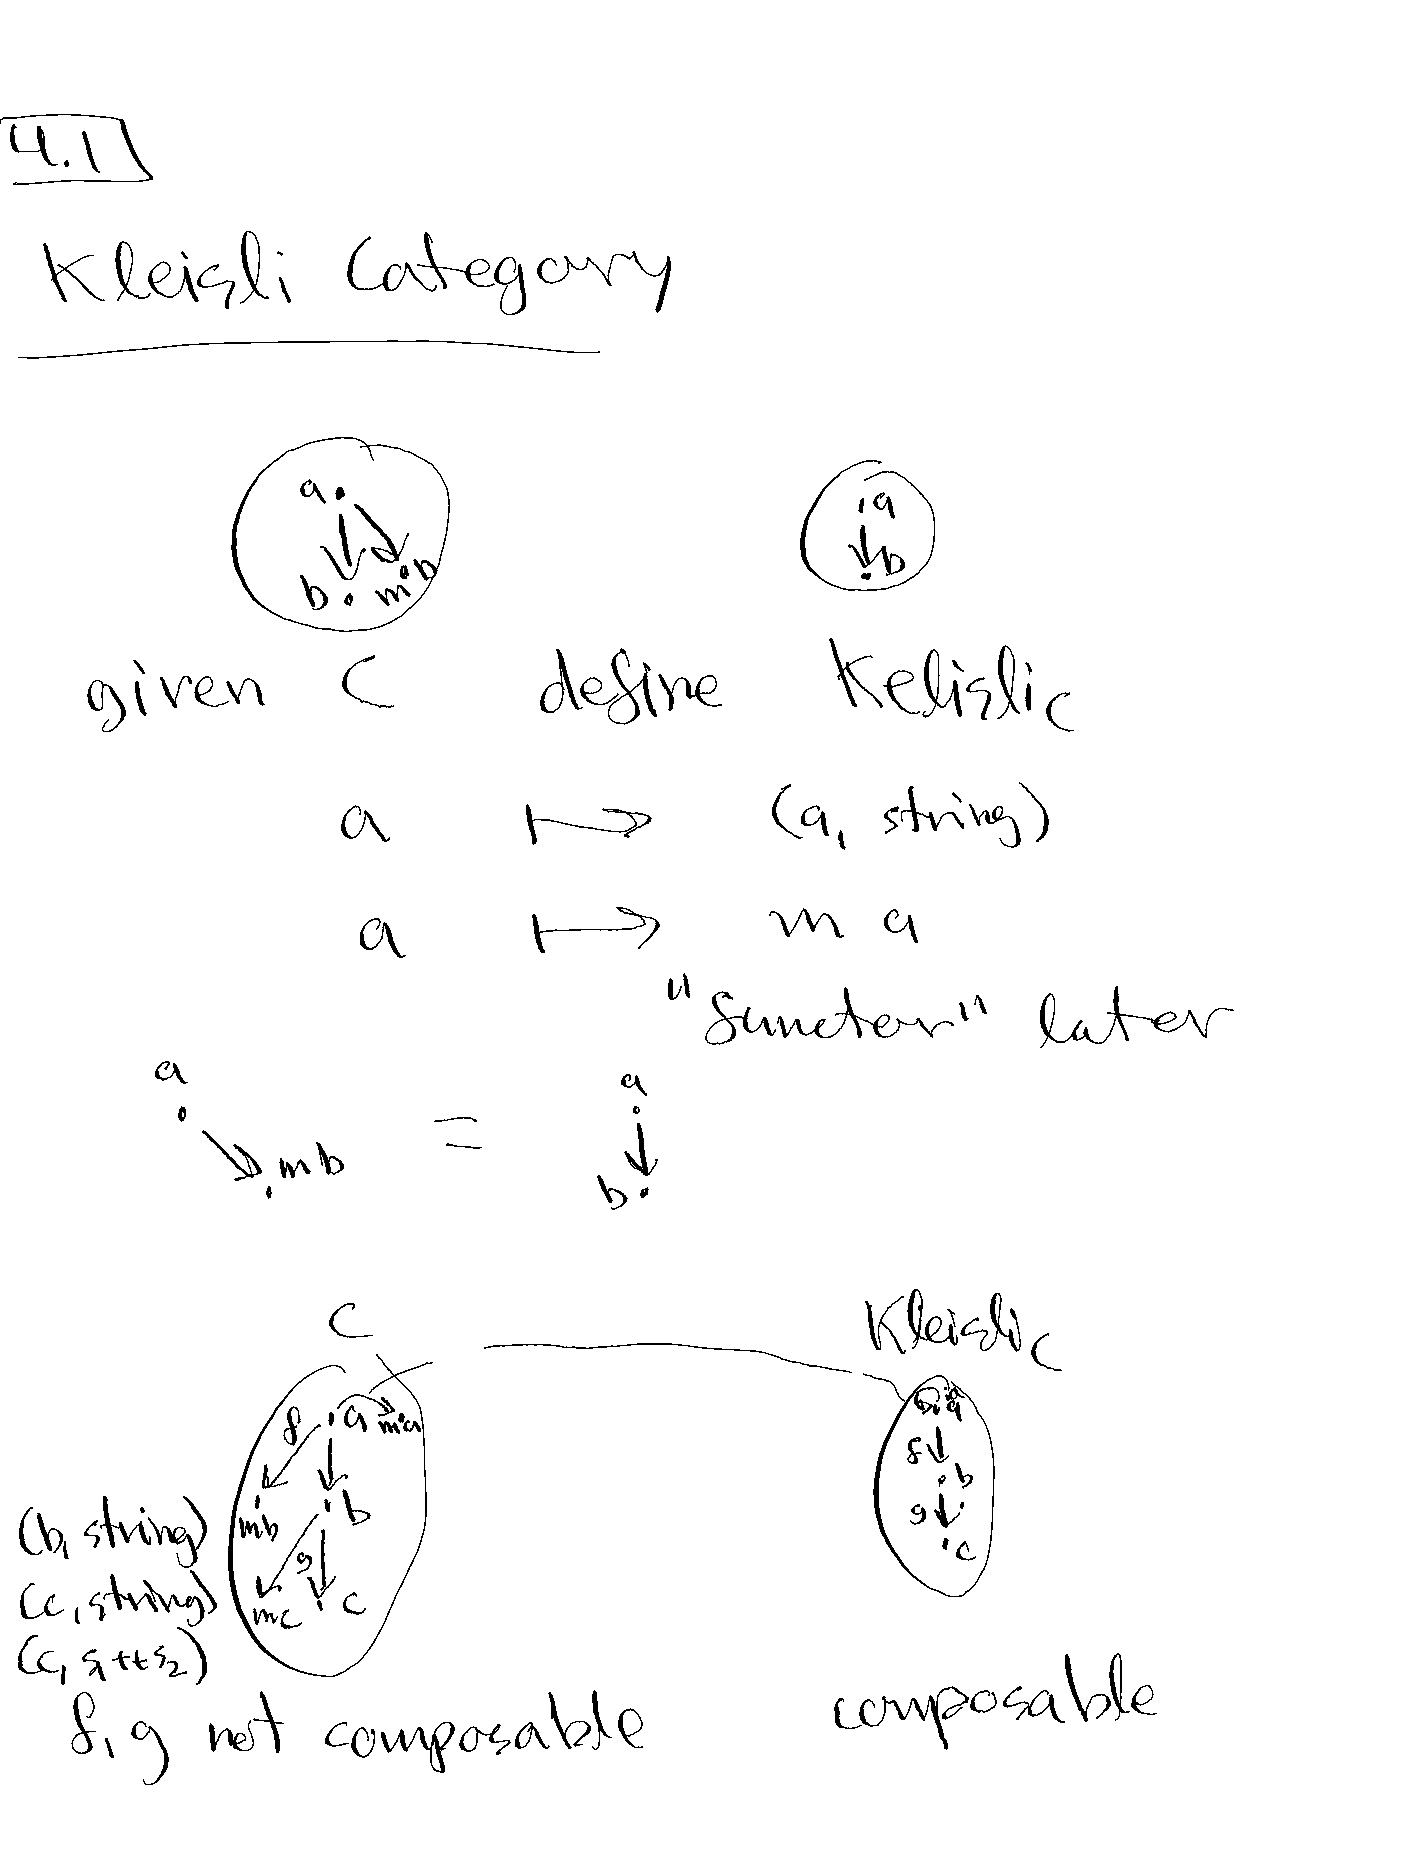 4.1
Kleisli Category
a
a
b
b
mb
given C define Kelisli C
a ↦ (a, string)
a ↦ m a
"functor" later
a
a
=
mb
b
C
Kleisli C
f
a
ma
a
f
b
(b, string)
mb
b
g
g
c
(c, string)
mc
c
(c, s1 ++ s2)
f, g not composable
composable